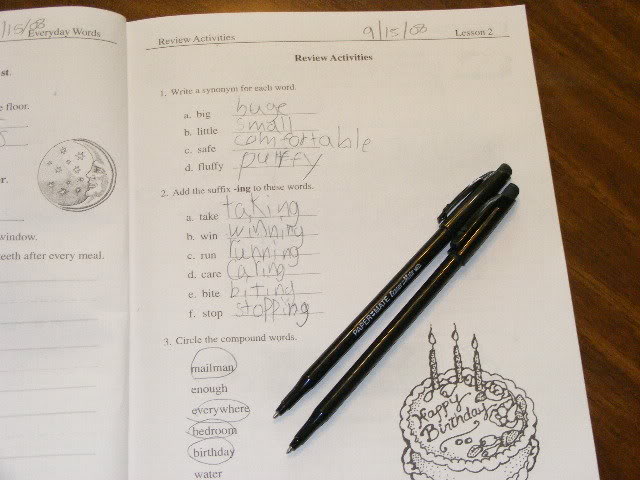 /15/08
Everyday Words
st.
e floor.
r.
window.
teeth after every meal.
Review Activities 9/15/08 Lesson 2
Review Activities
1. Write a synonym for each word.
a. big huge
b. little small
c. safe comfortable
d. fluffy puffy
2. Add the suffix -ing to these words.
a. take taking
b. win winning
c. run running
d. care caring
e. bite biting
f. stop stopping
3. Circle the compound words.
mailman
enough
everywhere
bedroom
birthday
water
PAPER MATE
Happy
Birthday